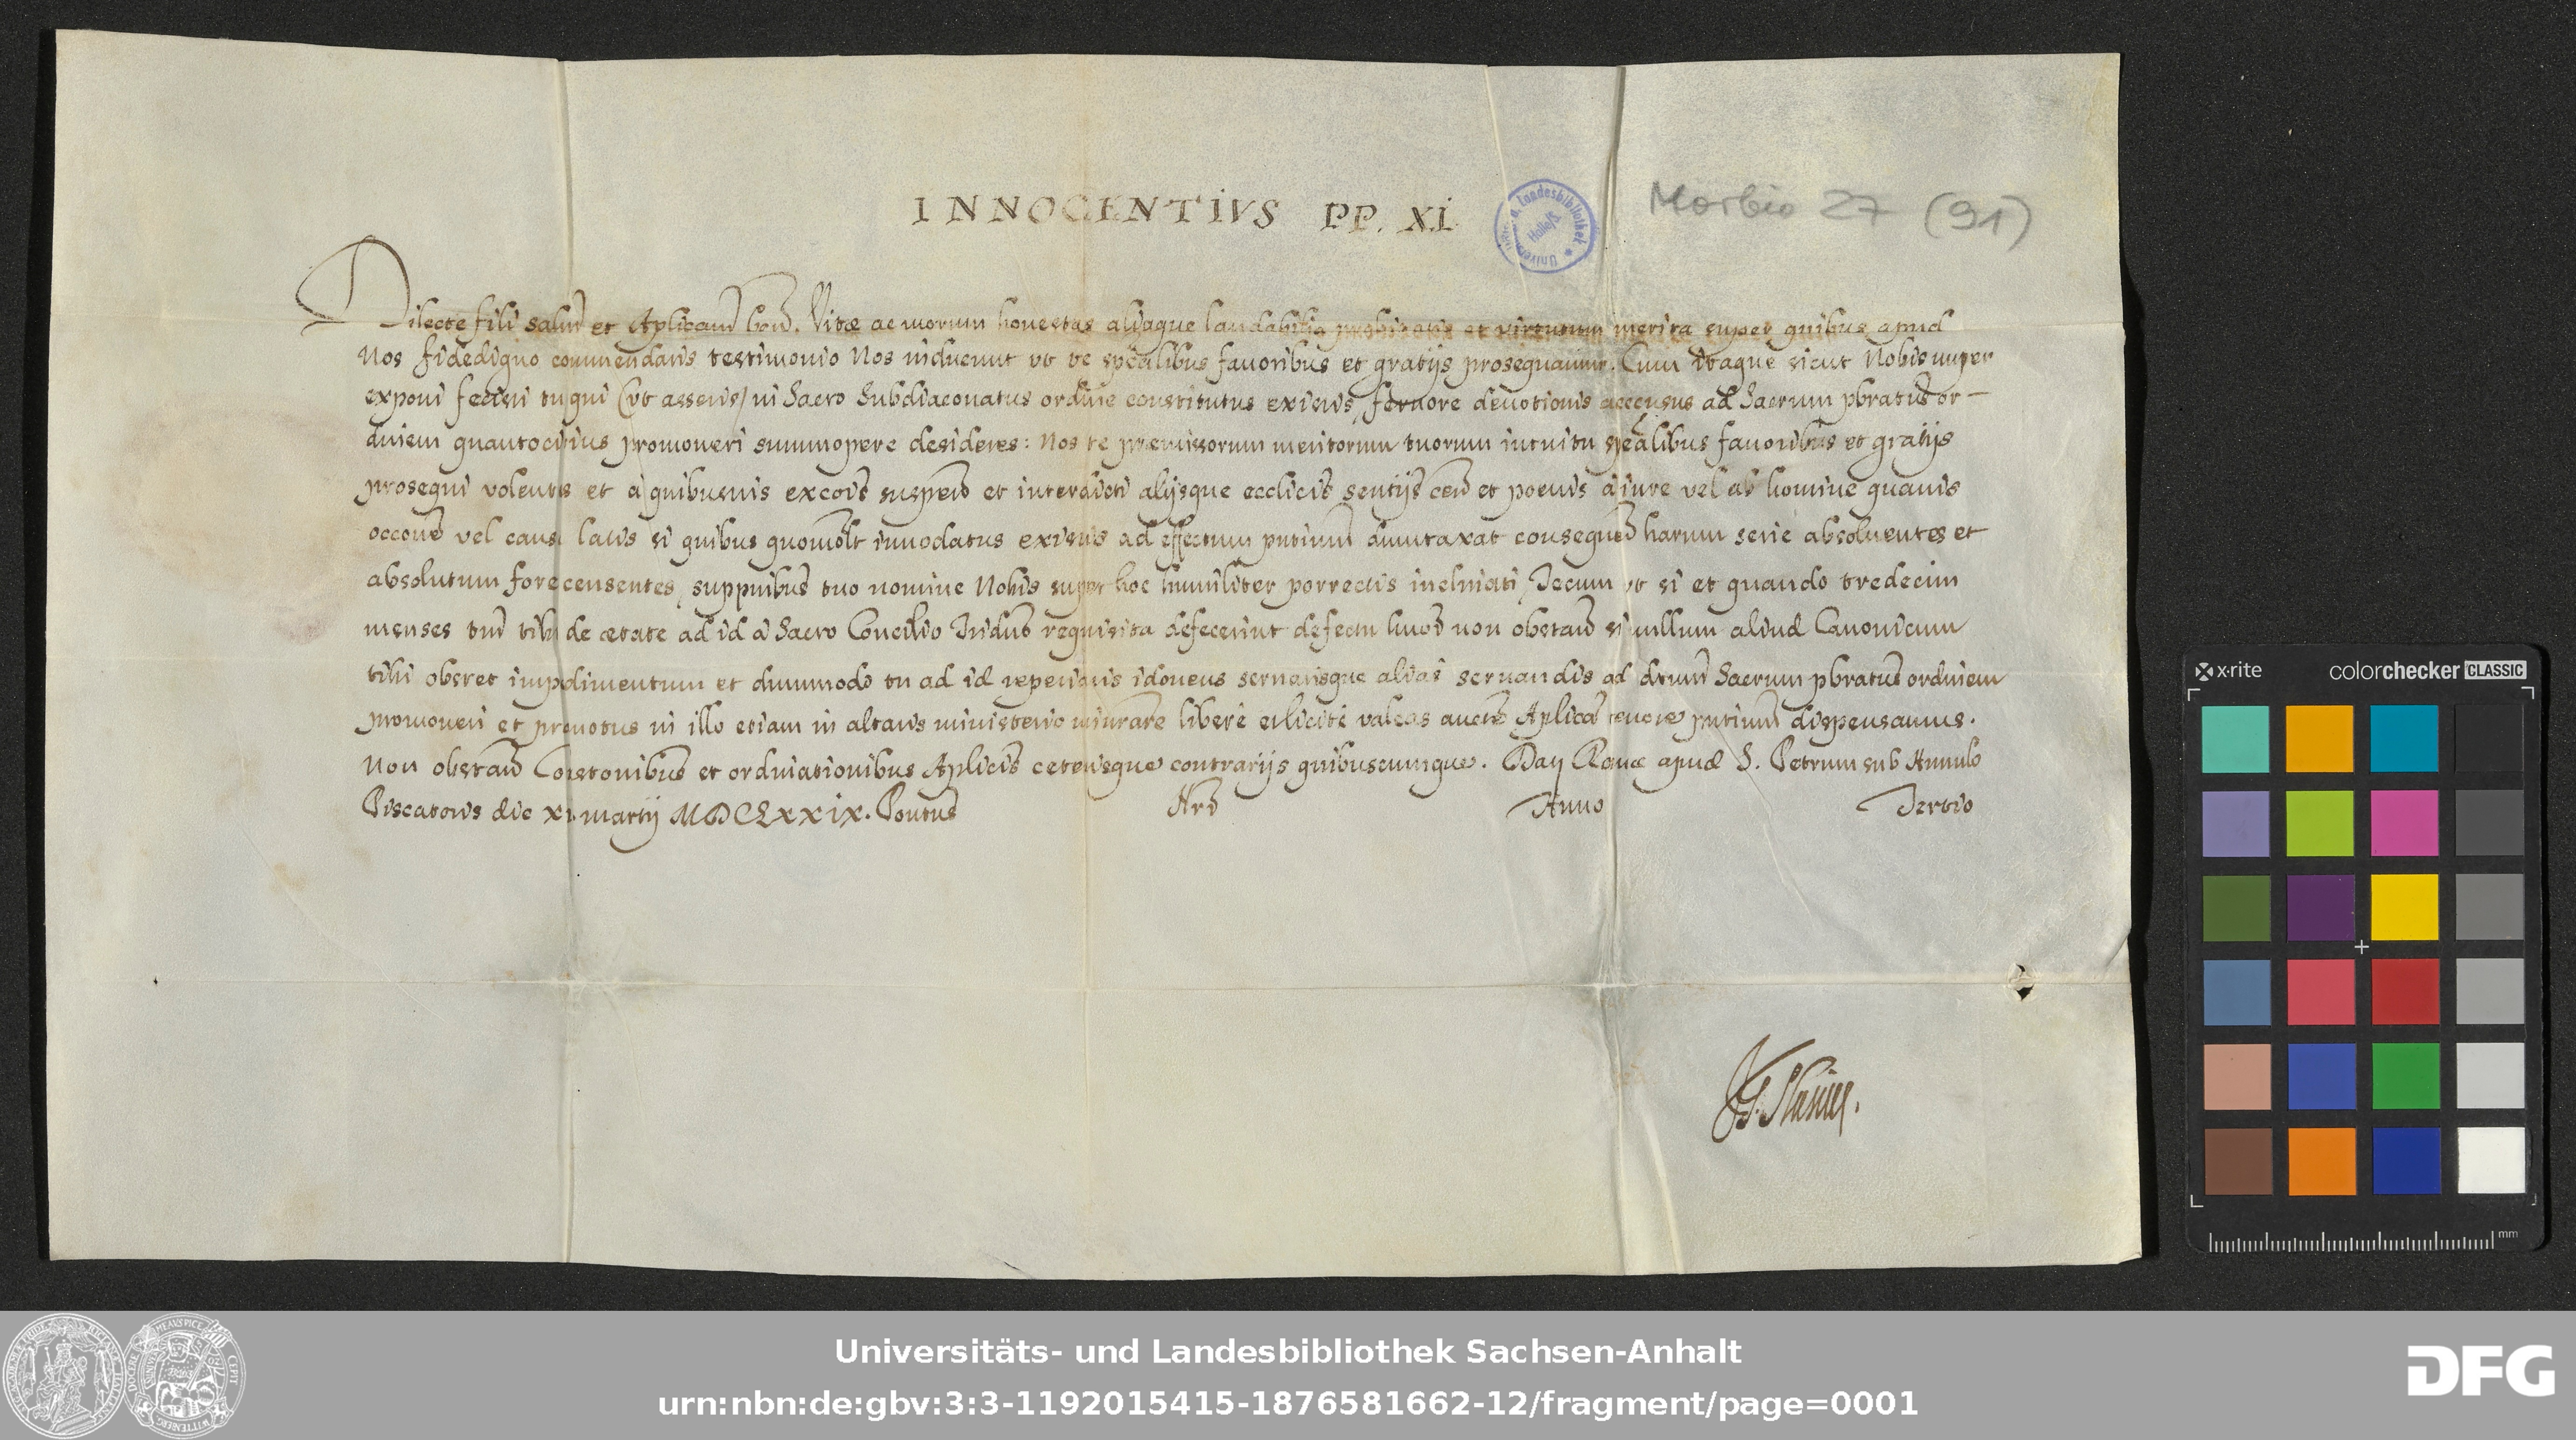 INNOCENTIVS PP. XI.
Morbio 27 (91)
Dilecte fili salutẽ et Aplicam̃ beñ. Vitæ ac morum honestas aliaque laudabilia probitatis et virtutum merita super quibus apud
Nos fidedigno commendaris testimonio Nos inducunt vt te spẽalibus fauoribus et gratijs prosequamur. Cum itaque sicut Nobis nuper
exponi fecisti tu qui (vt asseris) in Sacro Subdiaconatus ordine constitutus existis, feruore deuotionis accensus ad Sacrum pbratus̃ or-
dinem quantocitius promoueri summopere desideres: Nos te præmissorum meritorum tuorum intuitu spẽalibus fauoribus et gratijs
prosequi volentes et a quibusuis excoĩs suspeñ et interdicti alijsque ecclicis̃ sentijs̃ ceñ et poenis a iure vel ab homine quauis
occoñe vel causa latis si quibus quomolt̃ innodatus existis ad effectum pntium̃ dumtaxat consequeñ harum serie absoluentes et
absolutum fore censentes, suppnibus̃ tuo nomine Nobis super hoc humiliter porrectis inclinati, Tecum vt si et quando tredecim
menses tm̃ tibi de ætate ad id a Sacro Concilio Tridno requisita defecerint defectu hmõi non obstañ si nullum aliud Canonicum
tibi obstet impedimentum et dummodo tu ad id reperiaris idoneus seruatisque alias seruandis ad dictum̃ Sacrum pbratus̃ ordinem
promoueri et promotus in illo etiam in altaris ministerio ministrare libere et licite valeas aucte̴ Aplica̴ tenore pntium̃ dispensamus.
Non obstañ Constonibus̃ et ordinationibus Aplicis̃ ceterisque contrarijs quibuscumque. Dat̃ Romæ apud S. Petrum sub Annulo
Piscatoris die xi martij MDCLXXIX. Pontus̃ Nrĩ Anno Tertio
Universitäts- und Landesbibliothek Sachsen-Anhalt
urn:nbn:de:gbv:3:3-1192015415-1876581662-12/fragment/page=0001
DFG
x-rite colorchecker CLASSIC
mm